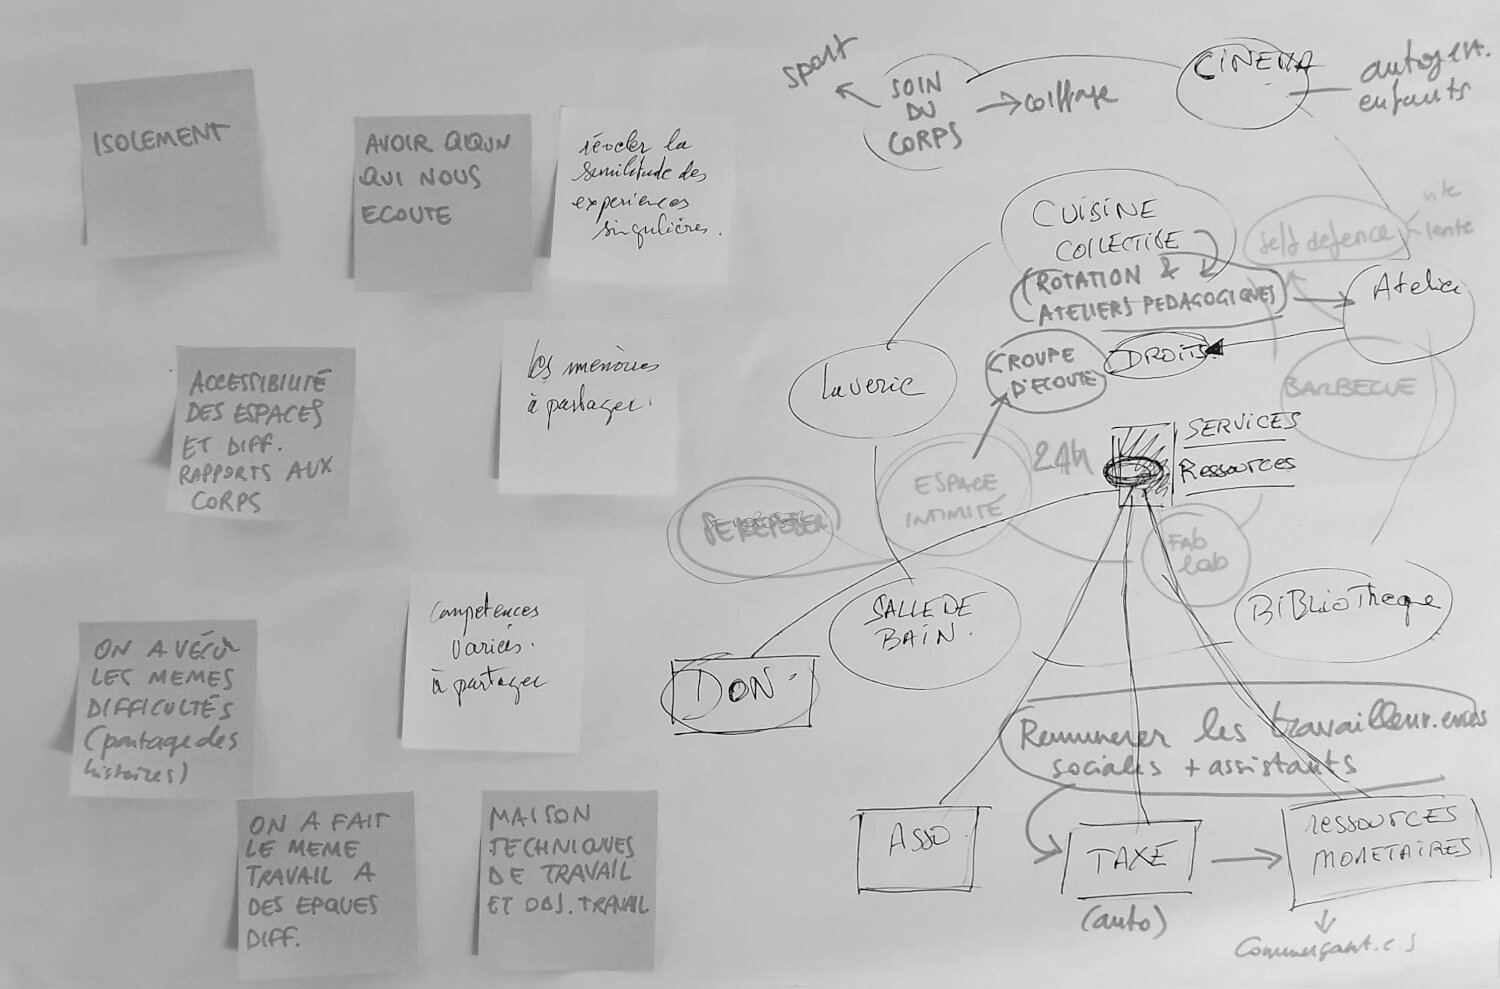 ISOLEMENT
AVOIR QLQUN
QUI NOUS
ECOUTE
révéler la
similitude des
experiences
singulières.
ACCESSIBILITÉ
DES ESPACES
ET DIFF.
RAPPORTS AUX
CORPS
les mémoires
à partager.
ON A VÉCU
LES MEMES
DIFFICULTÉS
(partage des
histoires)
Compétences
variées.
à partager
ON A FAIT
LE MEME
TRAVAIL A
DES EPQUES
DIFF.
MAISON
TECHNIQUES
DE TRAVAIL
ET OBJ. TRAVAIL
sport
SOIN
DU
CORPS
coiffage
CINEMA
autogest.
enfants
CUISINE
COLLECTIVE
(ROTATION &
ATELIERS PEDAGOGIQUES)
self defence
vite
lente
Atelier
Laverie
GROUPE
D'ECOUTE
DROITS.
BARBECUE
24h
SERVICES
RESSOURCES
ESPACE
INTIMITÉ
SE REPOSER
FAB
Lab
SALLE DE
BAIN.
BIBLIOTHEQUE
DON.
Remunerer les travailleur.euses
sociales + assistants
ASSO.
TAXE
(auto)
RESSOURCES
MONETAIRES
Commerçant.e.s